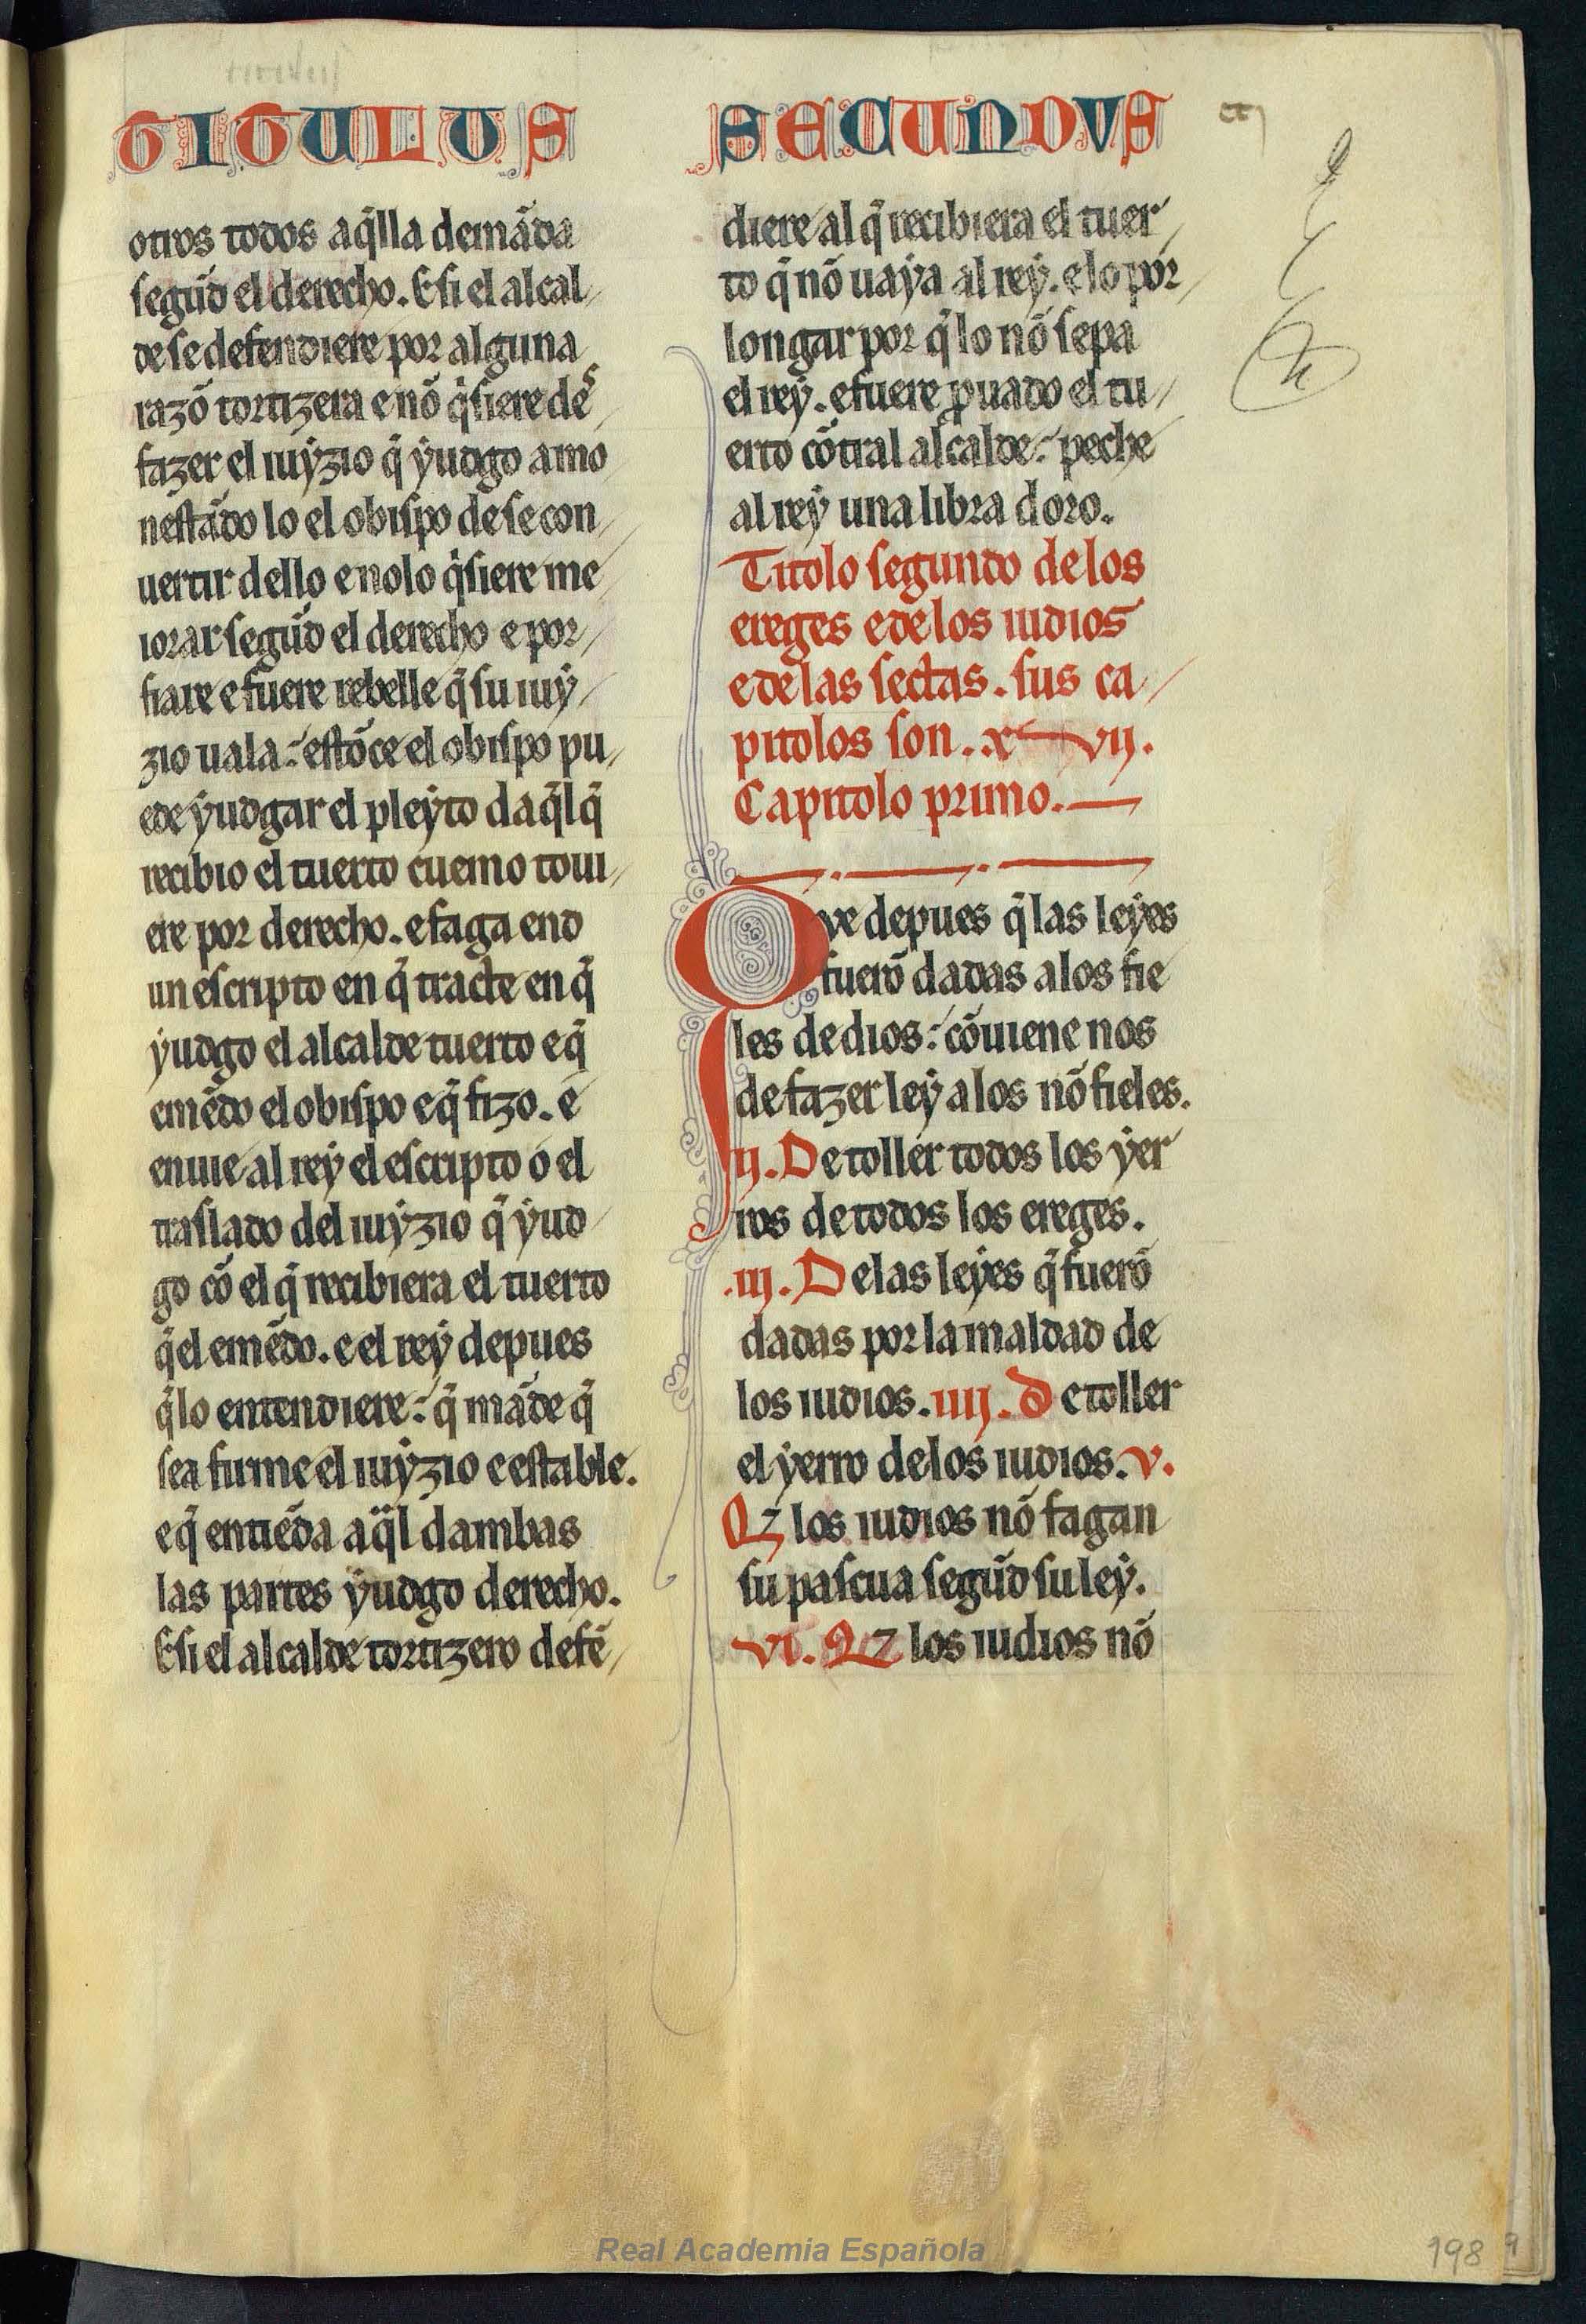 TITULUS SECUNDVS
otros todos aq̃lla demãda
segũd el derecho. E si el alcal
de se defendiere por alguna
razõ tortizera e nõ q̃siere de
fazer el iuyzio q̃ yudgo amo
nestãdo lo el obispo de se con
uertir dello e nolo q̃siere me
iorar segũd el derecho e por
fiare e fuere rebelle q̃ su iuy
zio uala: estõce el obispo pu
ede yudgar el pleyto daq̃l q̃
recibio el tuerto cuemo toui
ere por derecho. e faga end
un escripto en q̃ tracte en q̃
yudgo el alcalde tuerto e q̃
emẽdo el obispo e q̃ fizo. e
enuie al rey el escripto o el
traslado del iuyzio q̃ yud
go cõ el q̃ recibiera el tuerto
q̃el emẽdo. e el rey depues
q̃ lo entendiere: q̃ mãde q̃
sea firme el iuyzio e estable.
e q̃ entiẽda aq̃l dambas
las partes yudgo derecho.
E si el alcalde tortizero defẽ
diere al q̃ recibiera el tuer
to q̃ nõ uaya al rey. e lo por
longar por q̃ lo nõ sepa
el rey. e fuere ꝓuado el tu
erto cõtral alcalde: peche
al rey una libra doro.
Titolo segundo de los
ereges e de los iudios
e de las sectas. sus ca
pitolos son. x vij.
Capitolo primo.
Que depues q̃ las leyes
fuerõ dadas a los fie
les de dios: cõuiene nos
de fazer ley a los nõ fieles.
ij. De toller todos los yer
ros de todos los ereges.
.iij. De las leyes q̃ fuerõ
dadas por la maldad de
los iudios. iiij. De toller
el yerro de los iudios. v.
Qz los iudios nõ fagan
su pascua segũd su ley.
vi. Qz los iudios nõ
Real Academia Española
198